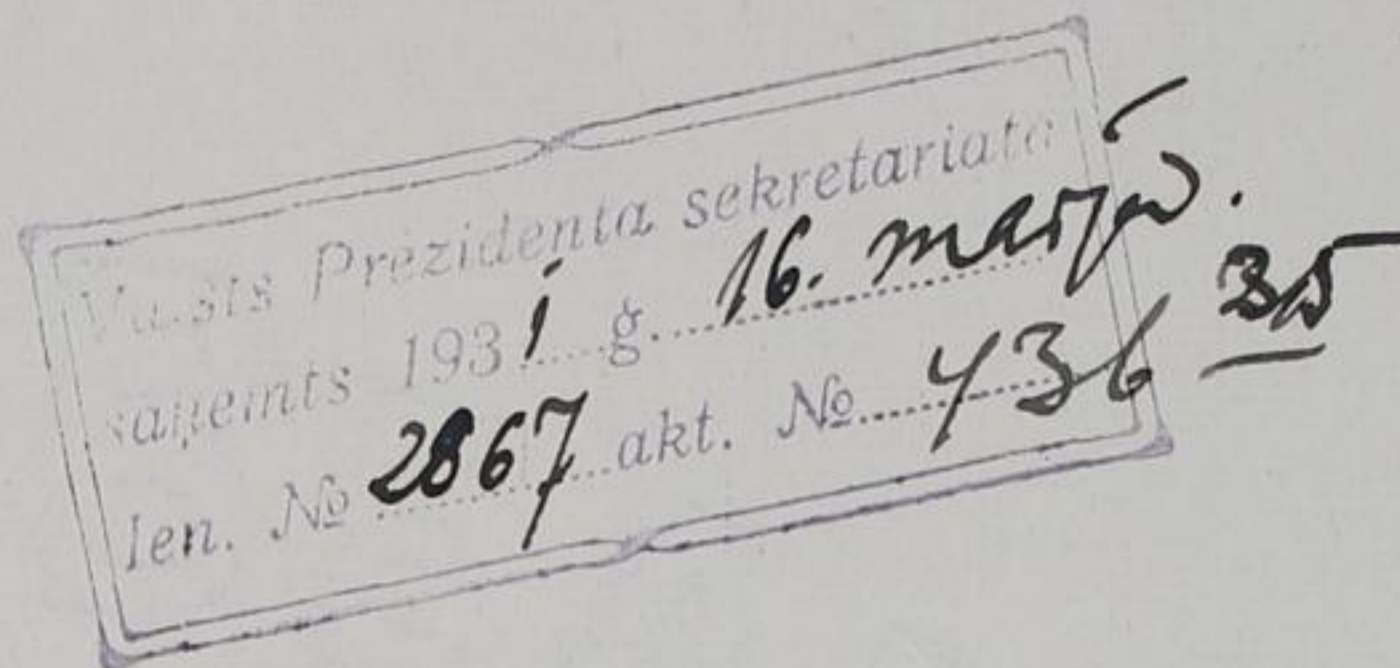 Valsts Prezidenta sekretariatā
saņemts 1931 g. 16. martā.
Ien. № 2867 akt. № 436 35